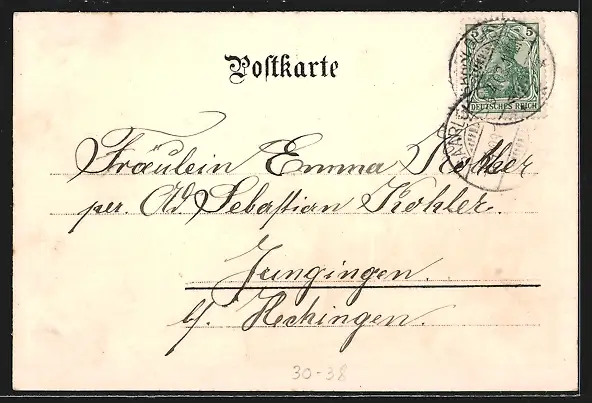 5
DEUTSCHES REICH
Postkarte
Fräulein Emma Kohler
per. Ad. Sebastian Kohler.
Jungingen.
b/. Hechingen.
30-38